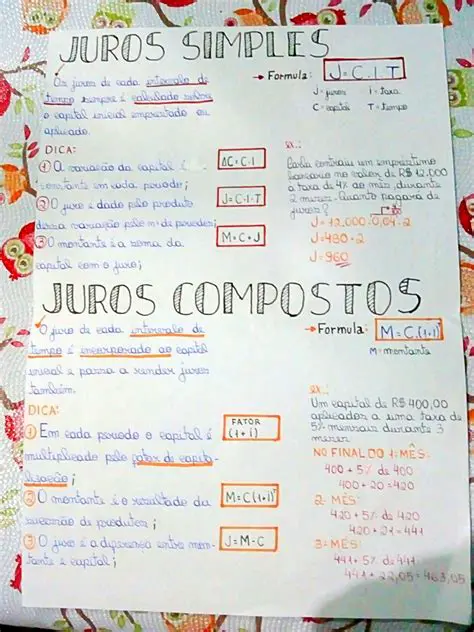 JUROS SIMPLES
Os juros de cada intervalo de
tempo sempre é calculado sobre
o capital inicial emprestado ou
aplicado.
→ Formula: J=C.I.T
J= juros i= taxa
C= capital T= tempo
DICA:
① A variação da capital é
constante em cada periodo;
ΔC=C.I
② O juro é dado pelo produto
dessa variação pelo n° de periodos;
J=C.I.T
③ O montante é a soma da
capital com o juro;
M=C+J
ex.:
Carla contraiu um empréstimo
bancario no valor de R$ 12.000
a taxa de 4% ao mês, durante
2 meses. Quanto pagará de
juros?
J=12.000.0,04.2
J=480.2
J=960
JUROS COMPOSTOS
O juro de cada intervalo de
tempo é incorporado ao capital
inicial e passa a render juros
também.
→ Formula: M=C.(1+i)
M=montante
DICA:
① Em cada periodo o capital é
multiplicado pelo fator de capita-
lização;
FATOR
(1+i)
② O montante é o resultado da
sucessão de produtos;
M=C(1+i)ᵀ
③ O juro é a diferença entre mon-
tante e capital;
J=M-C
ex.:
Um capital de R$ 400,00
aplicados a uma taxa de
5% mensais durante 3
meses
NO FINAL DO 1º MÊS:
400+5% de 400
400+20=420
2º MÊS:
420+5% de 420
420+21=441
3º MÊS:
441+5% de 441
441+22,05=463,05